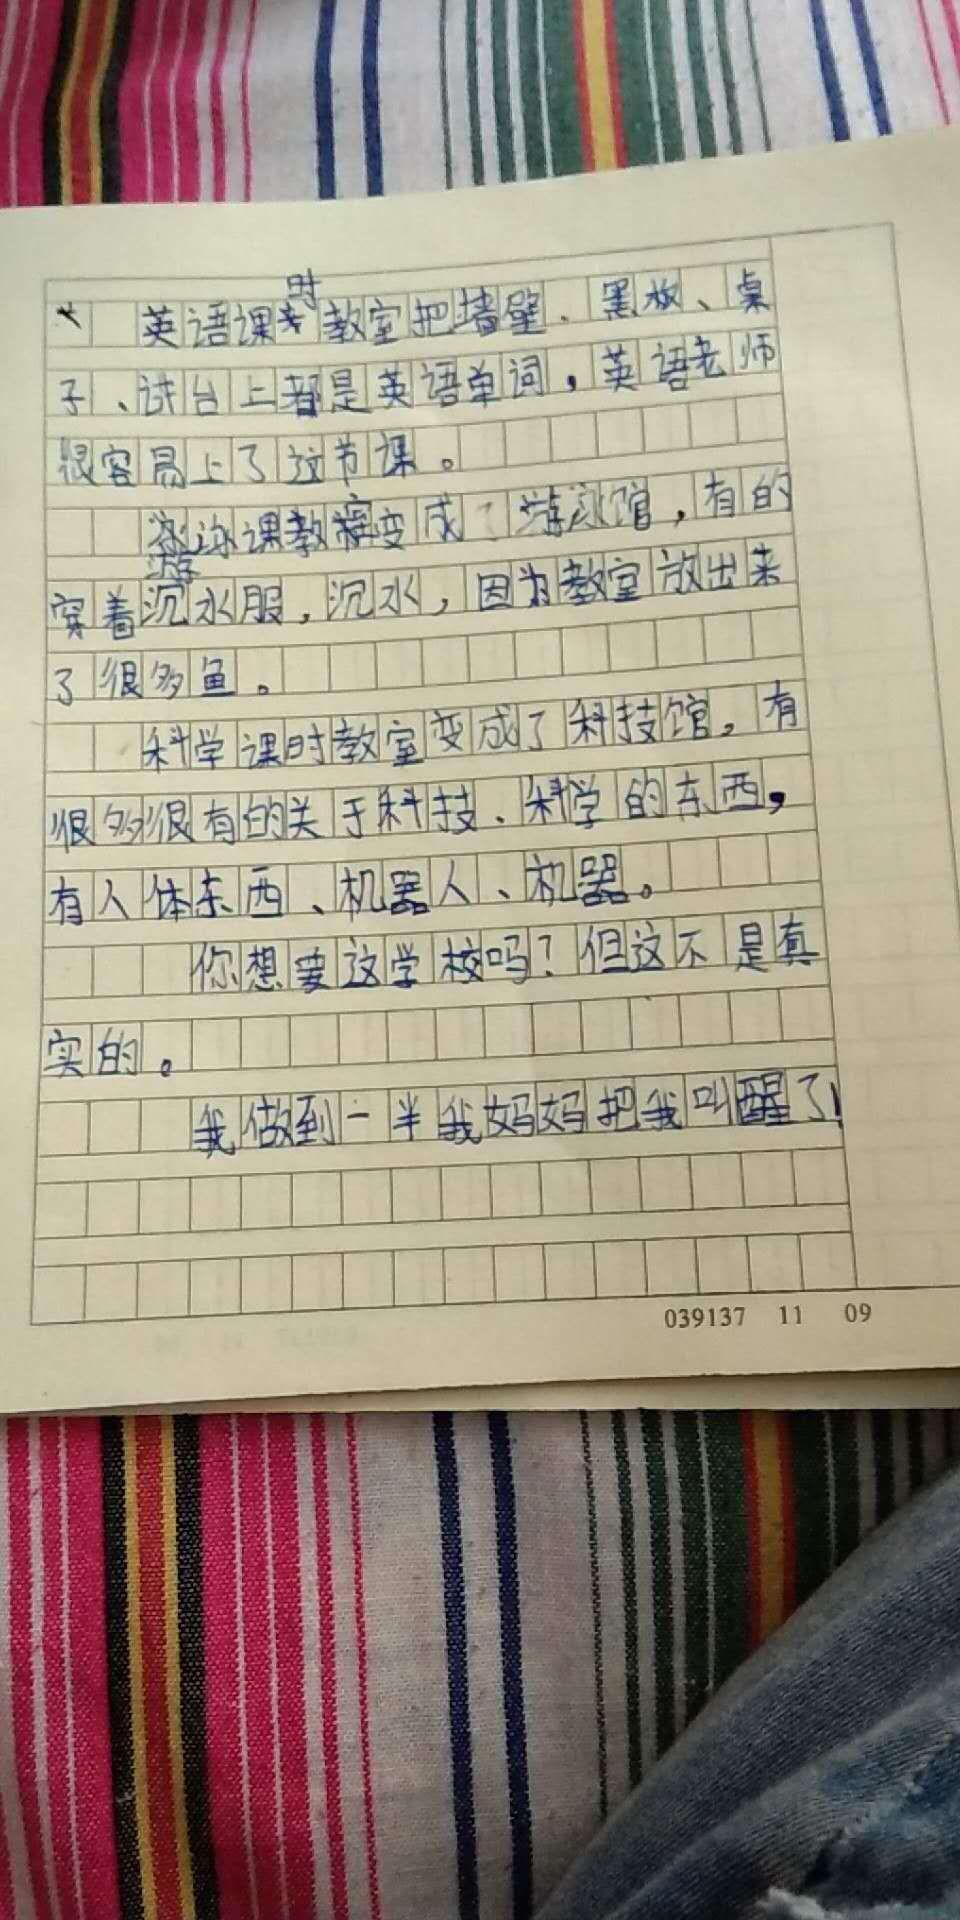 时
英语课 教室把墙壁、黑板、桌
子、讲台上都是英语单词，英语老师
很容易上了这节课。
游泳课教室变成了游泳馆，有的
穿着沉水服，沉水，因为教室放出来
了很多鱼。
科学课时教室变成了科技馆，有
很多很有的关于科技、科学的东西，
有人体东西、机器人、机器。
你想要这学校吗？但这不是真
实的。
我做到一半我妈妈把我叫醒了！
039137 11 09